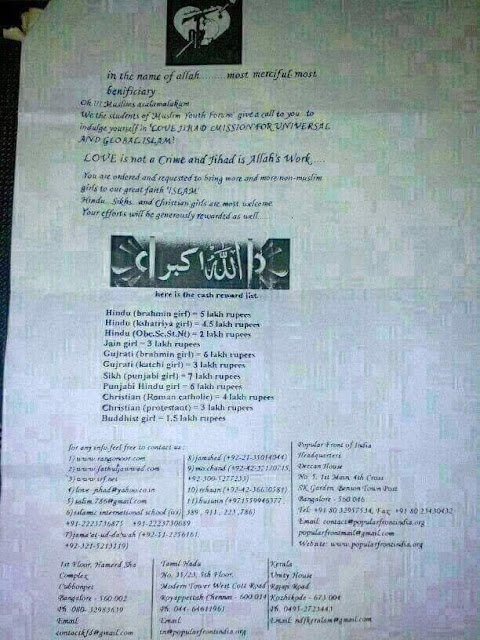 in the name of allah........most merciful most
benificiary
Oh !!! Muslims asalamalukum
We the students of "Muslim Youth Forum" give a call to you to
indulge yourself in 'LOVE JIHAD (MISSION FOR UNIVERSAL
AND GLOBAL ISLAM)'
LOVE is not a Crime and Jihad is Allah's Work....
You are ordered and requested to bring more and more non-muslim
girls to our great faith 'ISLAM'
Hindu, Sikhs, and Christian girls are most welcome
Your efforts will be generously rewarded as well....
الله اكبر
here is the cash reward list
Hindu (brahmin girl) = 5 lakh rupees
Hindu (kshatriya girl) = 4.5 lakh rupees
Hindu (Obc.Sc,St,Nt) = 2 lakh rupees
Jain girl = 3 lakh rupees
Gujrati (brahmin girl) = 6 lakh rupees
Gujrati (katchi girl) = 3 lakh rupees
Sikh (punjabi girl) = 7 lakh rupees
Punjabi Hindu girl = 6 lakh rupees
Christian (Roman catholic) = 4 lakh rupees
Christian (protestant) = 3 lakh rupees
Buddhist girl = 1.5 lakh rupees
for any info feel free to contact us :
1) www.rangonoor.com
2) www.fathuljawwad.com
3) www.irf.net
4) love_jihad@yahoo.co.in
5) salim.786@gmail.com
6) islamic international school (iis)
+91-2223736875 +91-2223730689
7) jama'at-ud-da'wah (+92-
+92-321-5213119)
8) jamshed (+92-21-35014044)
9) mo.chand (+92-42-
+92-300-5277233)
10) irhaan (+92-42-36630581)
11) hussnn (+97155994
389 , 911 , 223 ,786)
Popular Front of India
Headquarters
Deccan House
No. 5, 1st Main, 4th Cross
SK Garden, Benson Town Post
Bangalore - 560 046
Tel: +91 80 32957534, Fax: +91 80 23430432
Email: contact@popularfrontindia.org
popularfrontmail@gmail.com
Website: www.popularfrontindia.org
1st Floor, Hameed Sha
Complex
Cubbonpet
Bangalore - 560 002
Ph: 080-32983639
Email
contactkfd@gmail.com
Tamil Nadu
No. 35/23, 5th Floor,
Modern Tower West Cott Road
Royappettah Chennai - 600 014
Ph: 044- 64611961
Email
tn@popularfrontindia.org
Kerala
Unity House
Rajaji Road
Kozhikode - 673 004
Ph. 0495-2723443
Email: ndfkeralam@gmail.com